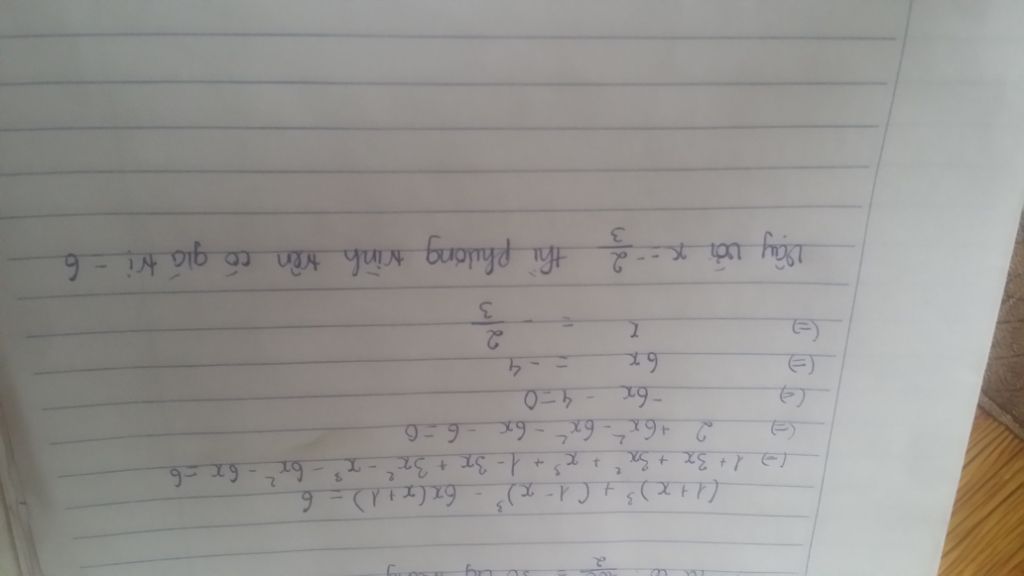 (1+x)³ + (1-x)³ - 6x(x+1) = 6
(=) 1+3x+3x²+x³+1-3x+3x²-x³-6x²-6x=6
(=) 2 +6x²-6x²-6x-6=0
(=) -6x - 4=0
(=) 6x = -4
(=) x = -2/3
Vậy với x=-2/3 thì phương trình trên có giá trị = 6